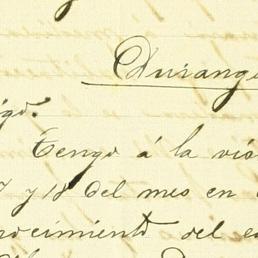 Durango
igo.
Tengo á la vis
7 y 18 del mes en
nocimiento del e